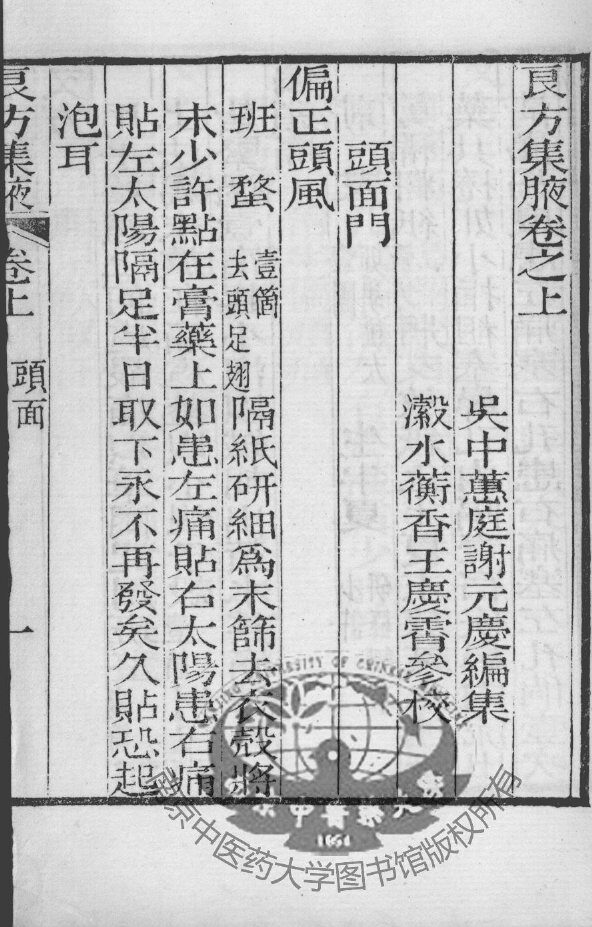 良方集腋卷之上
吳中蕙庭謝元慶編集
瀫水蘅香王慶霄參校
頭面門
偏正頭風
班蝥壹箇去頭足翅隔紙研細為末篩去衣殼將
末少許點在膏藥上如患左痛貼右太陽患右痛
貼左太陽隔足半日取下永不再發矣久貼恐起
泡耳
良方集腋 卷上 頭面 一
南京中医药大学图书馆版权所有
1954